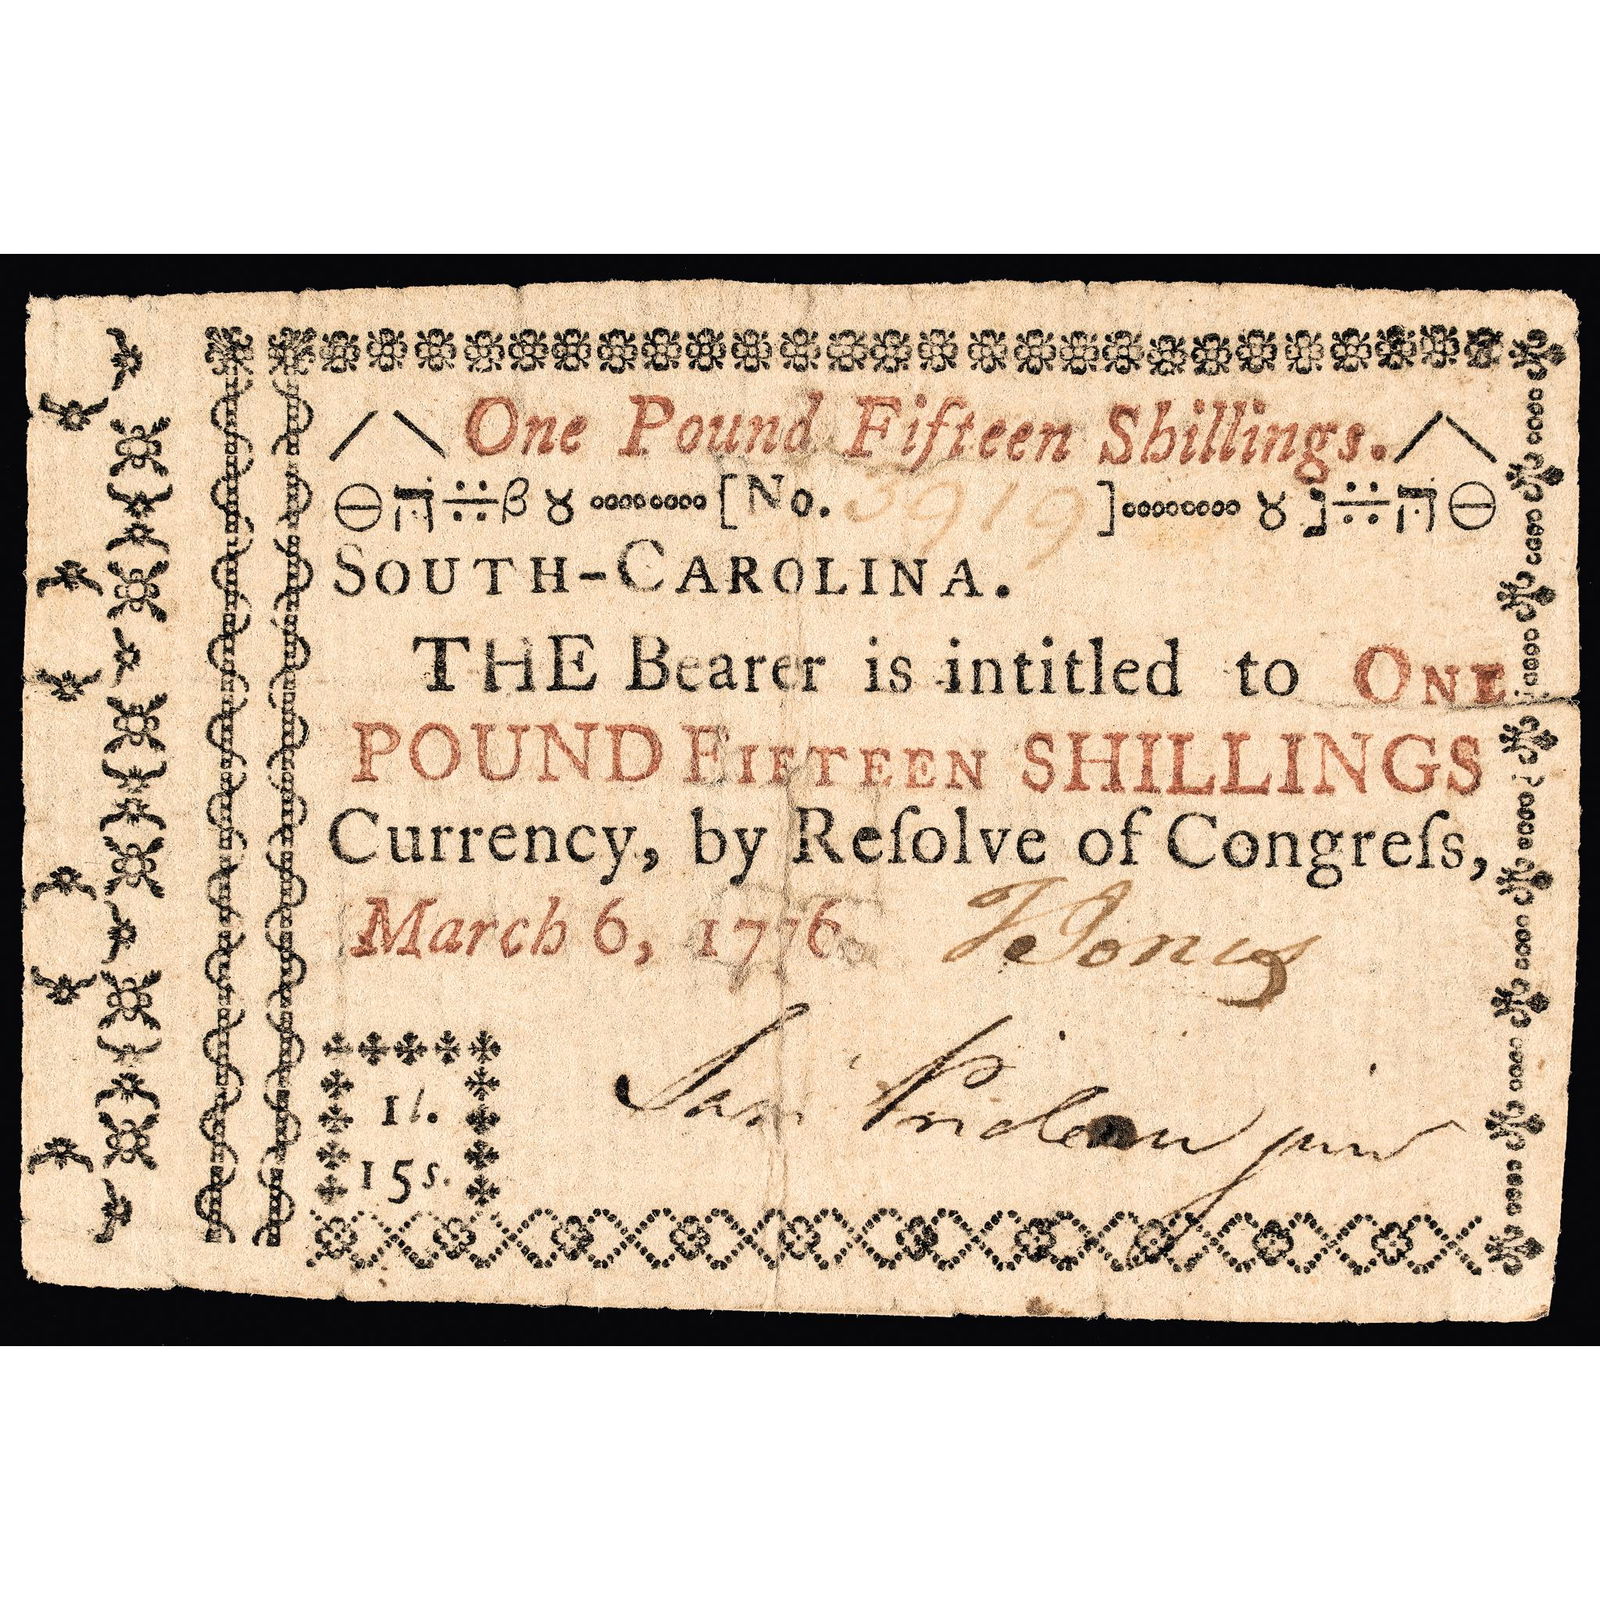 One Pound Fifteen Shillings.
[No. 3919]
SOUTH-CAROLINA.
THE Bearer is intitled to ONE
POUND FIFTEEN SHILLINGS
Currency, by Reſolve of Congreſs,
March 6, 1776.
1l.
15s.